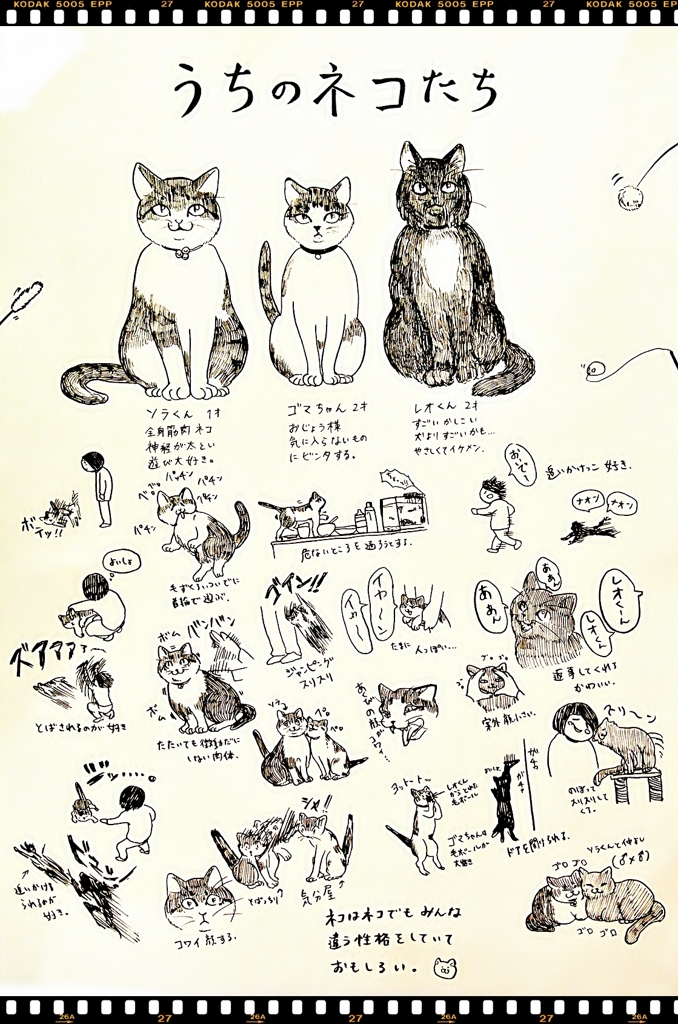 KODAK 5005 EPP 27 KODAK 5005 EPP 27 KODAK 5005 EPP 27 KODAK 5005 EPP
うちのネコたち
ソラくん 1才
全身筋肉ネコ
神経が太い
遊び大好き。
ゴマちゃん 2才
おじょう様
気に入らないもの
にビンタする。
レオくん 2才
すごいかしこい
犬よりすごいかも…
やさしくてイケメン。
ボーイッ!!
パッチン
パチン
パチン
ペロ
パチン
毛づくろいついでに
首輪で遊ぶ。
危ないところを通ろうとする。
おいでー
追いかけっこ 好き。
ナオン
ナオン
よいしょ
ズアアアァー
とばされるのが好き
ボム
バンバン
ボム
たたいても微動だに
しない肉体。
ゴイン!!
ジャンピング
スリスリ
イヤーン
イヤー
たまに 人っぽい…
ああん
ああん
レオくん
レオくん
返事してくれる
かわいい。
実外顔小さい。
ソラ
ペロ
ペロ
スリーン
のぼって
スリスリして
くる。
追いかけ
られるのが
好き。
コワイ顔する。
とばっちり
シャ!!
気分屋
ヨットートッ
レオくん
からとめた
毛ボール
ゴマちゃんは
毛ボールが
大好き
ガチャ
ガチャ
ドアを開けられる。
ソラくんと仲よし
(♂×♂)
ゴロ ゴロ
ゴロ ゴロ
ネコはネコでも みんな
違う性格をしていて
おもしろい。
26A 27 26A 27 26A 27 26A